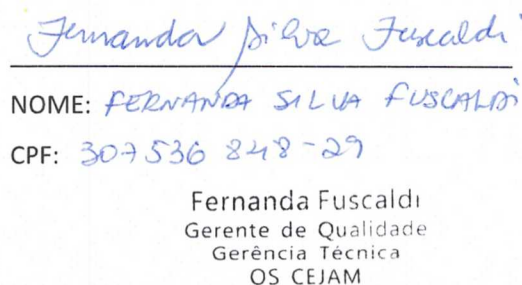 Fernanda Silva Fuscaldi
NOME: FERNANDA SILVA FUSCALDI
CPF: 307536848-29
Fernanda Fuscaldi
Gerente de Qualidade
Gerência Técnica
OS CEJAM